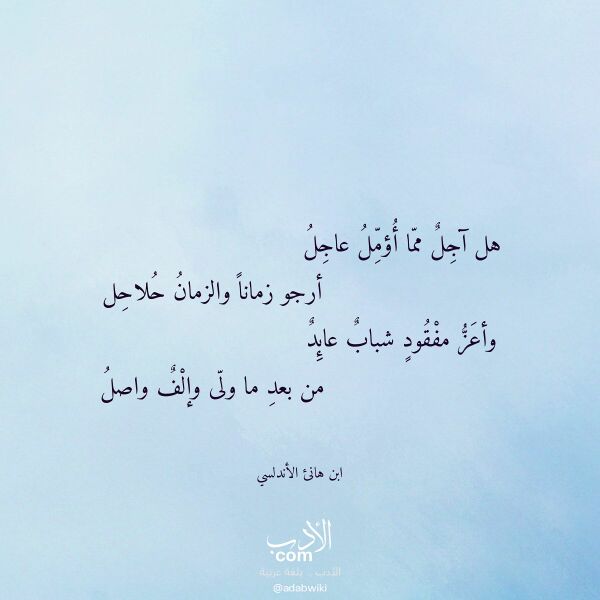 هل آجِلٌ ممّا أُؤمِّلُ عاجِلُ
أرجو زماناً والزمانُ حُلاحِل
وأعَزُّ مفْقُودٍ شبابٌ عايِدٌ
من بعدِ ما ولّى وإلْفٌ واصلُ
ابن هانئ الأندلسي
الأدب
com
الأدب .. بلغة عربية
@adabwiki